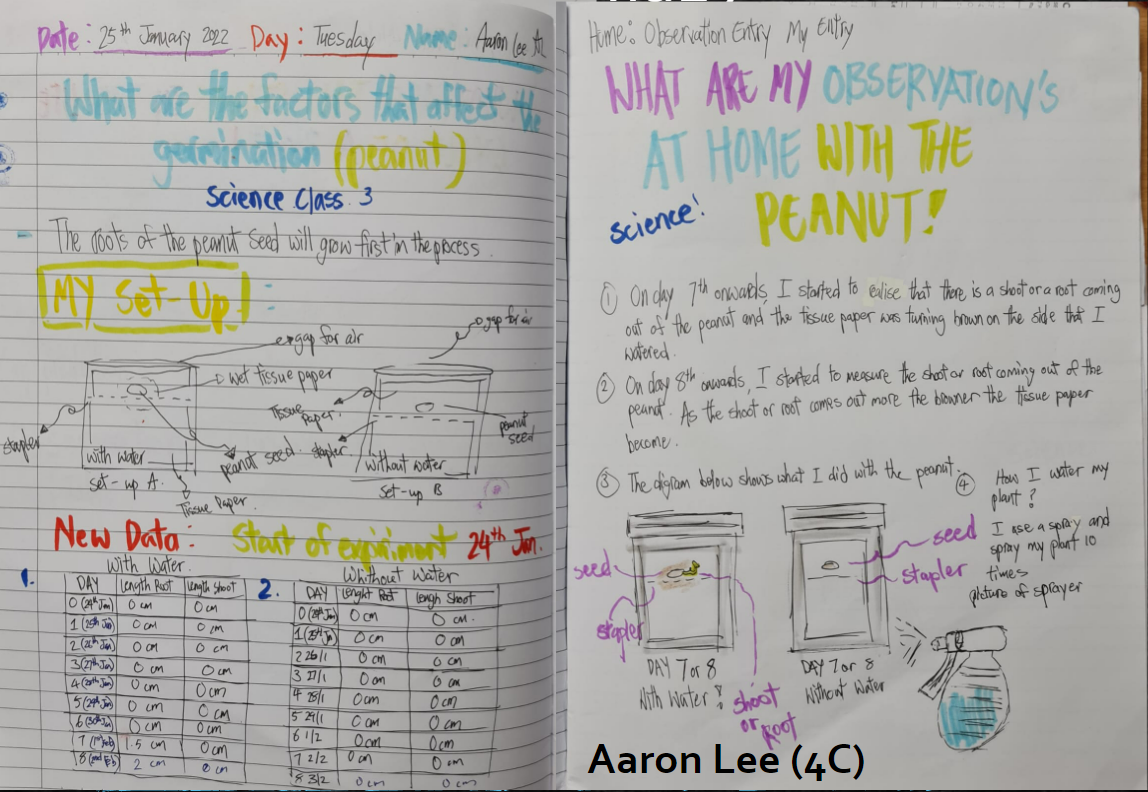 Date: 25th January 2022 Day: Tuesday Name: Aaron Lee
What are the factors that affect the
germination (peanut)
Science Class 3
The roots of the peanut seed will grow first in the process.
MY Set-Up :
gap for air
wet tissue paper
stapler
with water
set-up A.
Tissue Paper.
peanut seed.
gap for air
Tissue
Paper.
stapler.
peanut
seed
without water
Set-up B
New Data: Start of expiriment 24th Jan.
1. With Water.
DAY Length Root Length Shoot
0 (24th Jan) 0 cm 0 cm
1 (25th Jan) 0 cm 0 cm
2 (26th Jan) 0 cm 0 cm
3 (27th Jan) 0 cm 0 cm
4 (28th Jan) 0 cm 0 cm
5 (29th Jan) 0 cm 0 cm
6 (30th Jan) 0 cm 0 cm
7 (1st Feb) 1.5 cm 0 cm
8 (2nd Feb) 2 cm 0 cm
2. Whithout Water
DAY Lenght Root Lengh Shoot
0 (24th Jan) 0 cm 0 cm.
1 (25th Jan) 0 cm 0 cm
2 26/1 0 cm 0 cm
3 27/1 0 cm 0 cm
4 28/1 0 cm 0 cm
5 29/1 0 cm 0 cm
6 1/2 0 cm 0 cm
7 2/2 0 cm 0 cm
8 3/2 0 cm 0 cm
Home: Observation Entry My Entry
WHAT ARE MY OBSERVATION'S
AT HOME WITH THE
PEANUT!
science!
① On day 7th onwards, I started to realise that there is a shoot or a root coming
out of the peanut and the tissue paper was turning brown on the side that I
watered.
② On day 8th onwards, I started to measure the shoot or root coming out of the
peanut. As the shoot or root comes out more the browner the tissue paper
become.
③ The digram below shows what I did with the peanut.
seed
stapler
DAY 7 or 8
With Water
shoot
or
root
seed
stapler
DAY 7 or 8
Without Water
④ How I water my
plant?
I use a spray and
spray my plant 10
times
picture of sprayer
Aaron Lee (4C)